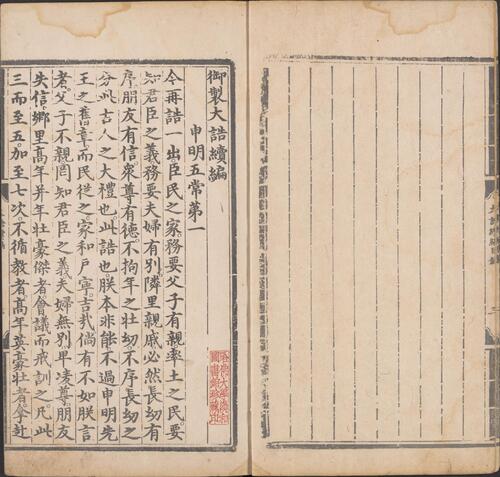 御製大誥續編
申明五常第一
今再誥一出臣民之家務要父子有親率土之民要
知君臣之義務要夫婦有別隣里親戚必然長幼有
序朋友有信衆尊有德不拘年之壯幼不序長幼之
分此古人之大禮也此誥也朕本非能不過申明先
王之舊章而民從之家和戶寧吉哉倘有不如朕言
者父子不親罔知君臣之義夫婦無別卑凌尊朋友
失信鄉里高年并年壯豪傑者會議而戒訓之凡此
三而至五加至七次不循教者高年英豪壯者拿赴